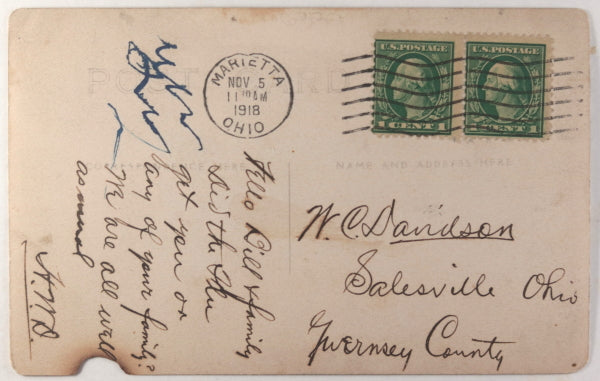 POST CARD
MARIETTA
NOV 5
11 30 AM
1918
OHIO
U.S. POSTAGE
1 CENT 1
U.S. POSTAGE
CENTS
CORRESPONDENCE HERE
NAME AND ADDRESS HERE
Hello Bill & family
Did the Flu
get you or
any of your family?
We are all well
as usual
A.W.D.
W. C. Davidson
Salesville Ohio
Guernsey County